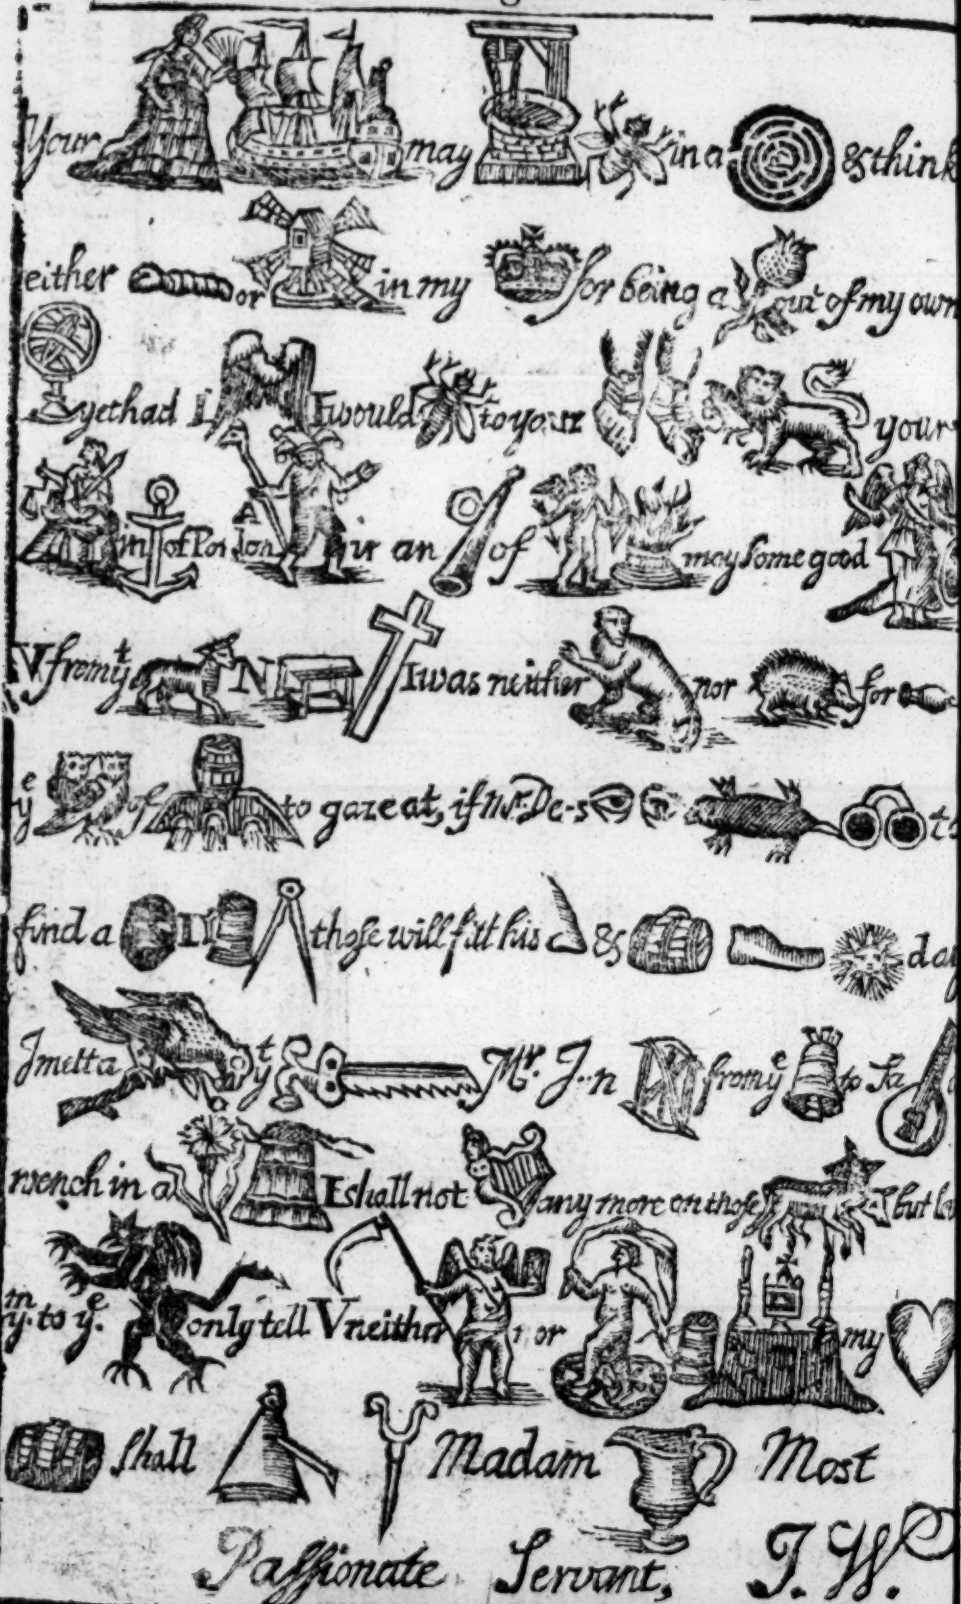 Your may in a & think
either or in my for being a out of my own
yet had I I would to your your
in of Pardon A ur an of may some good
V from yt N I was neither nor for
ye of to gaze at, if Mr. De-s to
find a IN those will fitt his & day
I mett a yt Mr. J--n from ye to Fa
wench in a I shall not any more on those but le
m y. to ye. only tell V neither or my
shall Madam Most
Passionate Servant,
J. W.